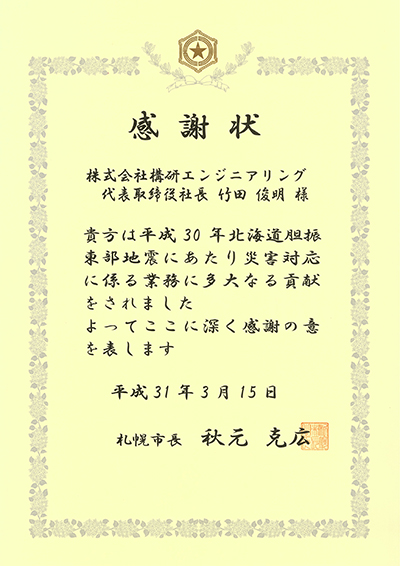 感謝状
株式会社構研エンジニアリング
代表取締役社長 竹田 俊明 様
貴方は平成30年北海道胆振
東部地震にあたり災害対応
に係る業務に多大なる貢献
をされました
よってここに深く感謝の意
を表します
平成31年3月15日
札幌市長 秋元 克広